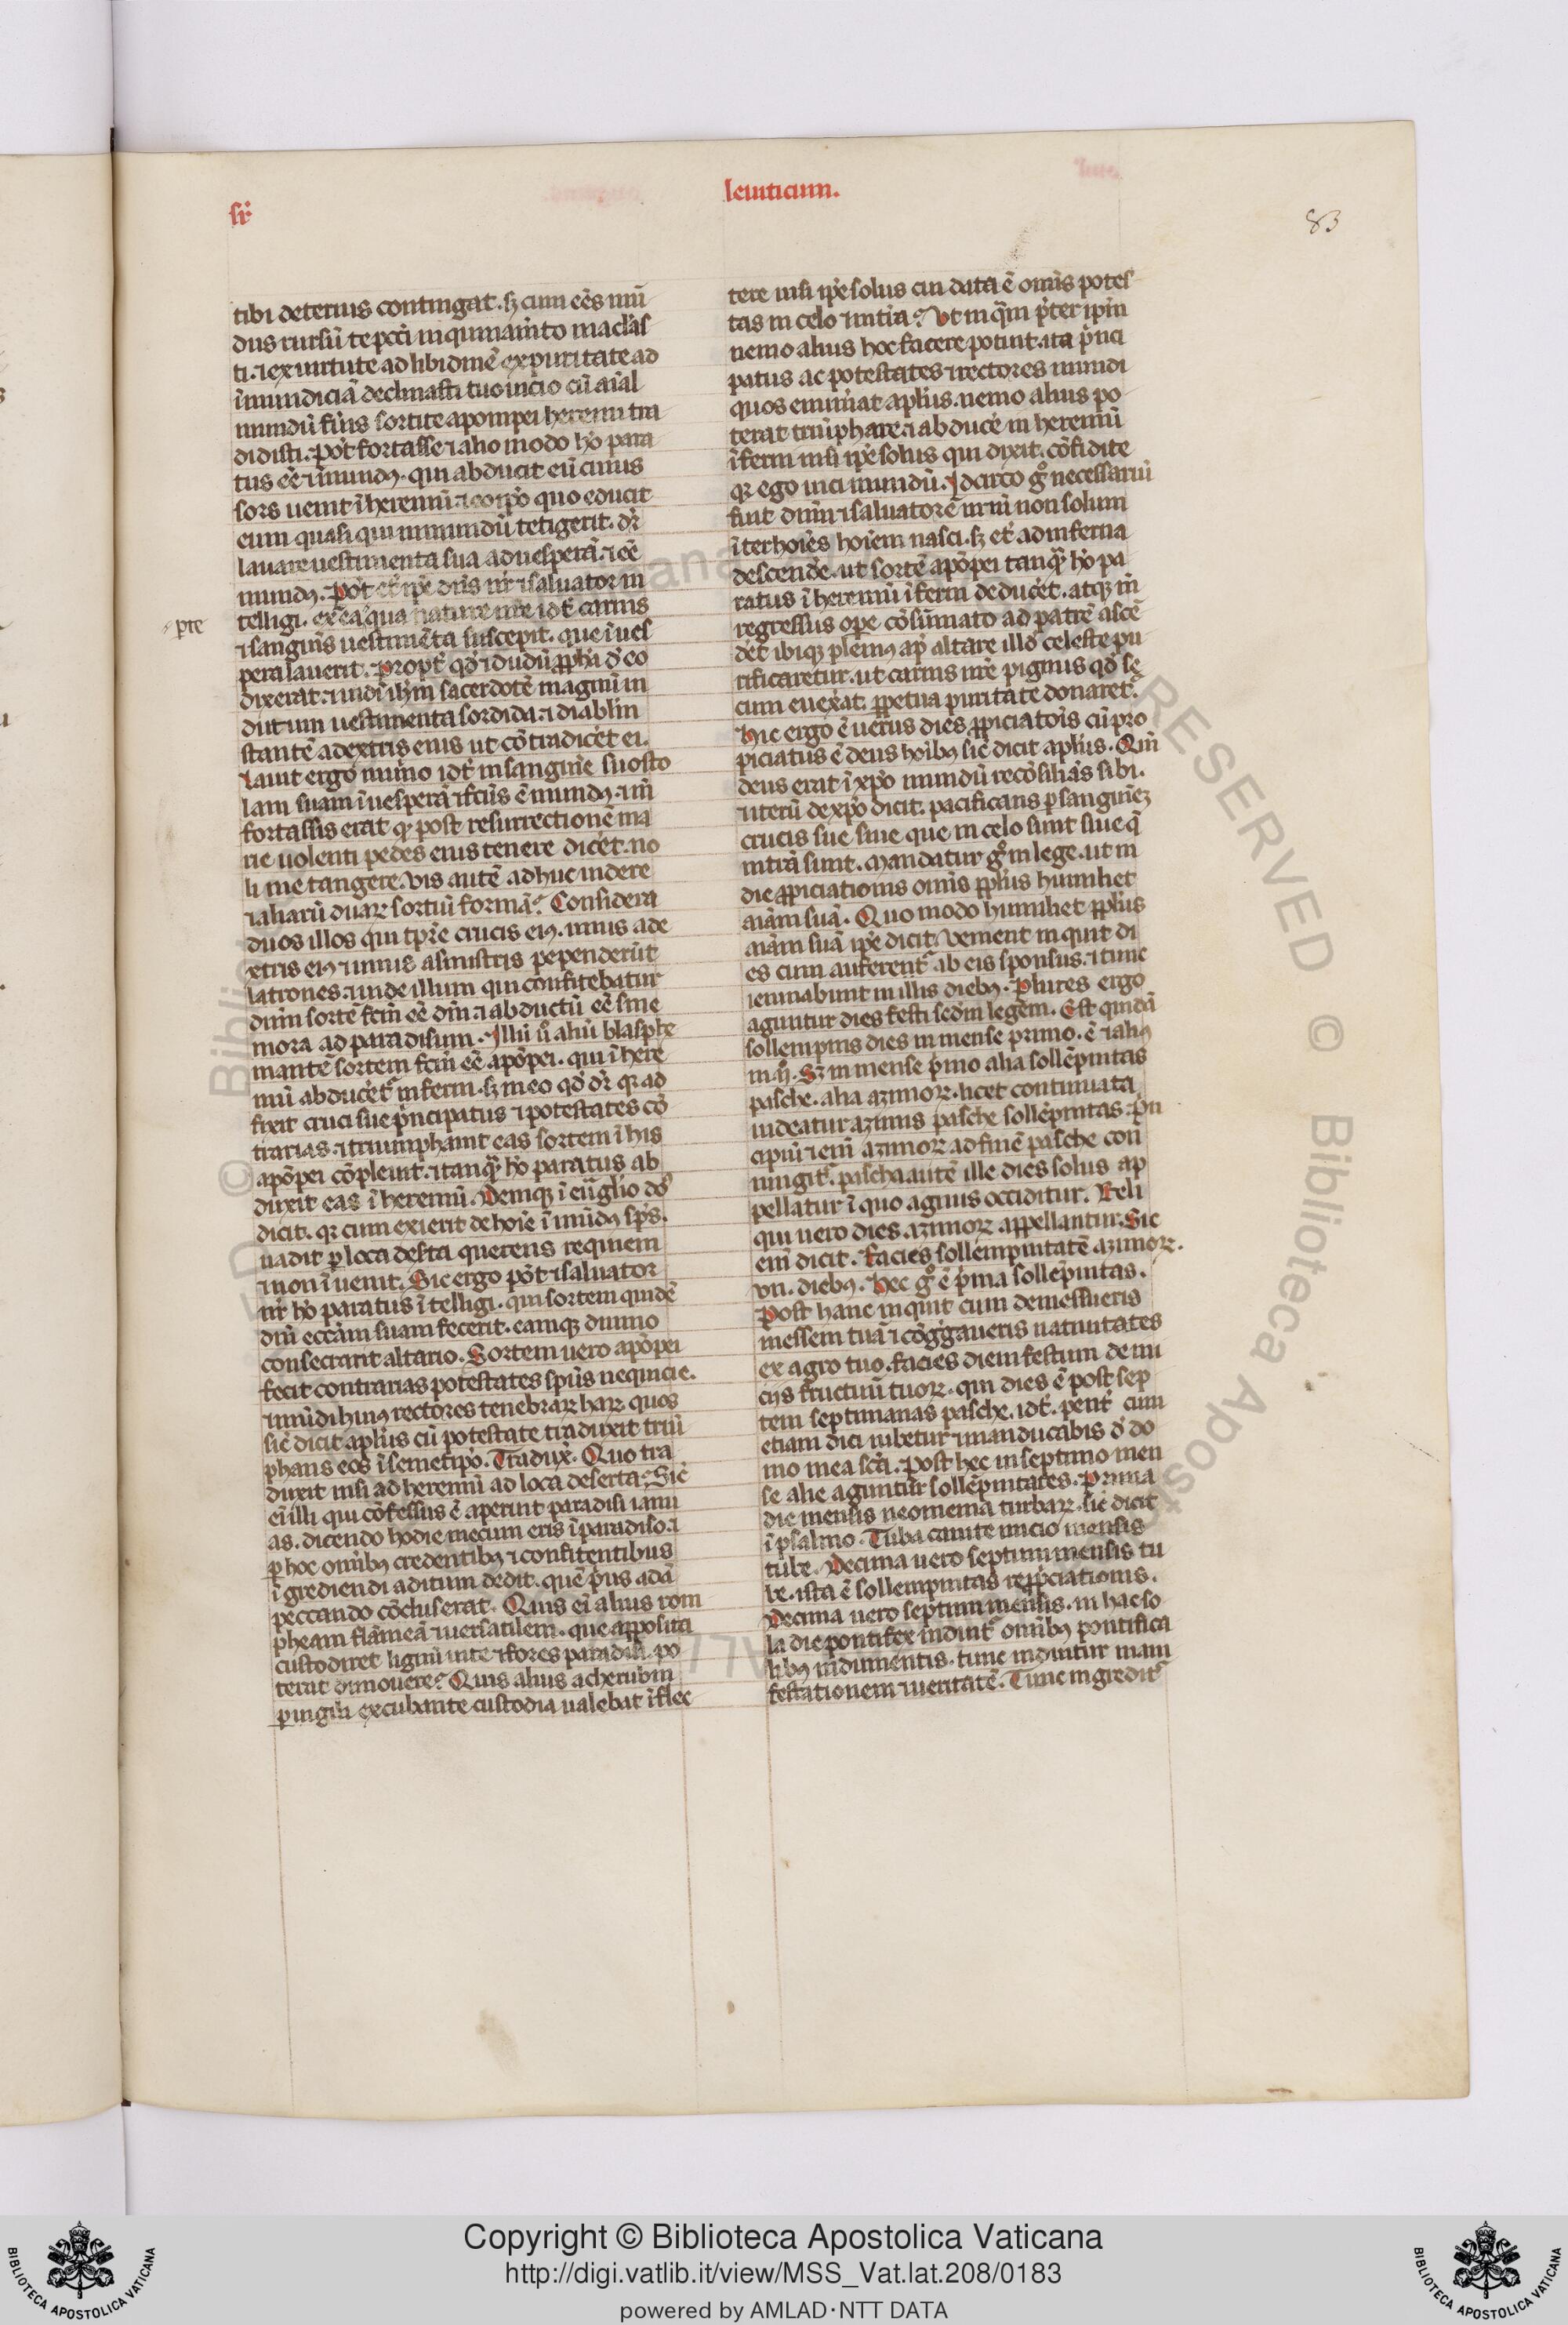 sr̄
leuiticum.
83
tibi deterius contingat. sꝫ cum eēs mū
dus rursū te pccī inquinamēto maclas
ti. ⁊ ex uirtute ad libidinē ex puritate ad
īmundiciā declinasti tuo iūcio cū aīal
mundū fūis sortite apompei heremi tra
didisti. Pōt fortasse ⁊ alio modo hō para
tus eē ⁊ īmundꝰ. qui abducit eū cuius
sors uenit ī heremū. ⁊ corpō quo educit
eum quasi qui immundū tetigerit. dr̄
lauare uestimenta sua ad uesperā. ⁊ eē
mundꝰ. Pōt et̄ ip̄e dn̄s nr̄ ⁊ saluator in
pte
telligi. ex ea qua nature nr̄e idē carnis
⁊ sanguis uestimēta suscepit. que ī ues
pera lauerit. Propt̄ qd̄ ⁊ dudū ꝓpha d̄ eo
dixerat. ⁊ uidi ih̄m sacerdotē magnū in
dutum uestimenta sordida. ⁊ diablm
stantē a dextris eius ut cōtradicēt ei.
Lauit ergo in uino idē in sanguīe suo sto
lam suam ī uesperā ⁊ fcūs ē mundꝰ. ⁊ iō
fortassis erat qꝫ post resurrectionē ma
rie uolenti pedes eius tenere dicēt. no
li me tangere. Vis autē adhuc uidere
⁊ aliarū duarꝝ sortiū formā? Considera
duos illos qui tpr̄e crucis eiꝰ. unus a de
xtris eiꝰ ⁊ unus a sinistris pependerūt
latrones. ⁊ uide illum qui confitebatur
dn̄m sortē fcm̄ eē dn̄i. ⁊ abductū eē sine
mora ad paradisum. Illū ū aliū blasphe
mantē sortem fcm̄ eē apōpei. qui ī here
mū abducēt inferni. sꝫ in eo qd̄ dr̄ qꝫ ad
fixit cruci sue p̄ncipatus ⁊ potestates cō
trarias. ⁊ triumphauit eas sortem ī his
apōpei cōpleuit. ⁊ tanqꝫ hō paratus ab
duxit eas ī heremū. Deniqꝫ ī euglio dō
dicit. qꝫ cum exierit de hoīe īmūdꝰ sp̄s.
uadit ꝑ loca desta querens requiem
⁊ non īuenit. Sic ergo pōt ⁊ saluator
nr̄ hō paratus ītelligi. qui sortem quidē
dn̄i ecc̄am suam fecerit. eamqꝫ diuino
consecrarit altario. Sortem uero apōpei
fecit contrarias potestates sp̄us nequicie.
⁊ mūdi huiꝰ rectores tenebrarꝝ harꝝ. quos
sic̄ dicit ap̄lus cū potestate traduxit triū
phans eos ī semetipō. Tradux̄. Quo tra
duxit nisi ad heremū ad loca deserta? Sic̄
eī illi qui cōfessus ē aperuit paradisi ianu
as. dicendo hodie mecum eris ī paradiso. ⁊
ꝑ hoc omībꝰ credentibꝰ ⁊ confitentibus
īgrediendi aditum dedit. quē p̄us adā
peccando cōcluserat. Quis eī alius rom
pheam flāmeā ⁊ uersatilem. que apposita
custodiret lignū uite ⁊ fores paradisi. po
terat dimouere? Quis alius a cherubin
ꝑuigili excubante custodia ualebat īflec
tere nisi ip̄e solus cui data ē om̄is potes
tas in celo ⁊ in tr̄a? Vt inq̄m p̄ter ip̄m
nemo alius hoc facere potuit. ita p̄nci
patus ac potestates ⁊ rectores mundi
quos enumāt ap̄lus. nemo alius po
terat triūphare. ⁊ abducē in heremū
īferni nisi ip̄e solus qui dixit. cōfidite
qꝫ ego uici mundū. Idcirco gͦ necessariū
fuit dn̄m ⁊ saluatorē nr̄m non solum
īter hoīes hoīem nasci. sꝫ et̄ ad inferna
descendē. ut sortē apōpei tanqꝫ hō pa
ratus ī heremū īferni deducēt. atqꝫ īn
regressus ope cōsūmato ad patrē ascē
dēt ibiqꝫ pleniꝰ ap̄ altare illd̄ celeste pu
rificaretur. ut carnis nr̄e pignus qd̄ se
cum euexāt ꝑpetua puritate donaret.
Hic ergo ē uerus dies ꝓpiciatoīs cū pro
piciatus ē deus hoībꝰ sic̄ dicit ap̄lus. Qm̄
deus erat ī xp̄o mundū recōsiliās sibi.
⁊ iterū de xp̄o dicit. pacificans ꝑ sanguīeꝫ
crucis sue siue que in celo sunt siue q̄
in tr̄a sunt. Mandatur gͦ in lege. ut in
die ꝓpiciationis om̄is pplus humiliet
aīam suā. Quo modo humiliet pplus
aīam suā ip̄e dicit. Venient inquit di
es cum auferent̄ ab eis sponsus. ⁊ tunc
ieiunabunt in illis diebꝰ. Plures ergo
aguntur dies festi scdm legem. Est quidā
sollempnis dies in mense primo. ē ⁊ aliꝰ
in ij. Sꝫ in mense p̄mo alia sollēpnitas
pasche. alia azimorꝝ. licet continuata
uideatur azimis pasche sollēpnitas. Pn
cipiū ⁊ enī azimorꝝ ad finē pasche con
iungit̄. pascha autē ille dies solus ap
pellatur ī quo agnus occiditur. Reli
qui uero dies azimorꝝ appellantur. Sic
enī dicit. facies sollempnitatē azimorꝝ.
vii. diebꝰ. Hec gͦ ē p̄ma sollēpnitas.
Post hanc inquit cum demessueris
messem tuā ⁊ cōg̃gaueris natiuitates
ex agro tuo. facies diem festum de ini
cijs fructuū tuorꝝ. qui dies ē post sep
tem septimanas pasche. idē. pent̄ cum
etiam dici iubetur ⁊ manducabis d̄ do
mo mea sc̄a. Post hec in septimo men
se alie aguntur sollēpnitates. Prima
die mensis neomenia turbarꝝ. sic̄ dicit
ī psalmo. Tuba canite inicio mensis
tube. Decima uero septimi mensis tu
be. ista ē sollempnitas reꝓpiciationis.
Decima uero septimi mensis. in hac so
la die pontifex induit̄ omībꝰ pontifica
libꝰ indumentis. tunc induitur mani
festationem ⁊ ueritatē. Tunc ingredit̄
Copyright © Biblioteca Apostolica Vaticana
http://digi.vatlib.it/view/MSS_Vat.lat.208/0183
powered by AMLAD·NTT DATA
BIBLIOTECA APOSTOLICA VATICANA
BIBLIOTECA APOSTOLICA VATICANA